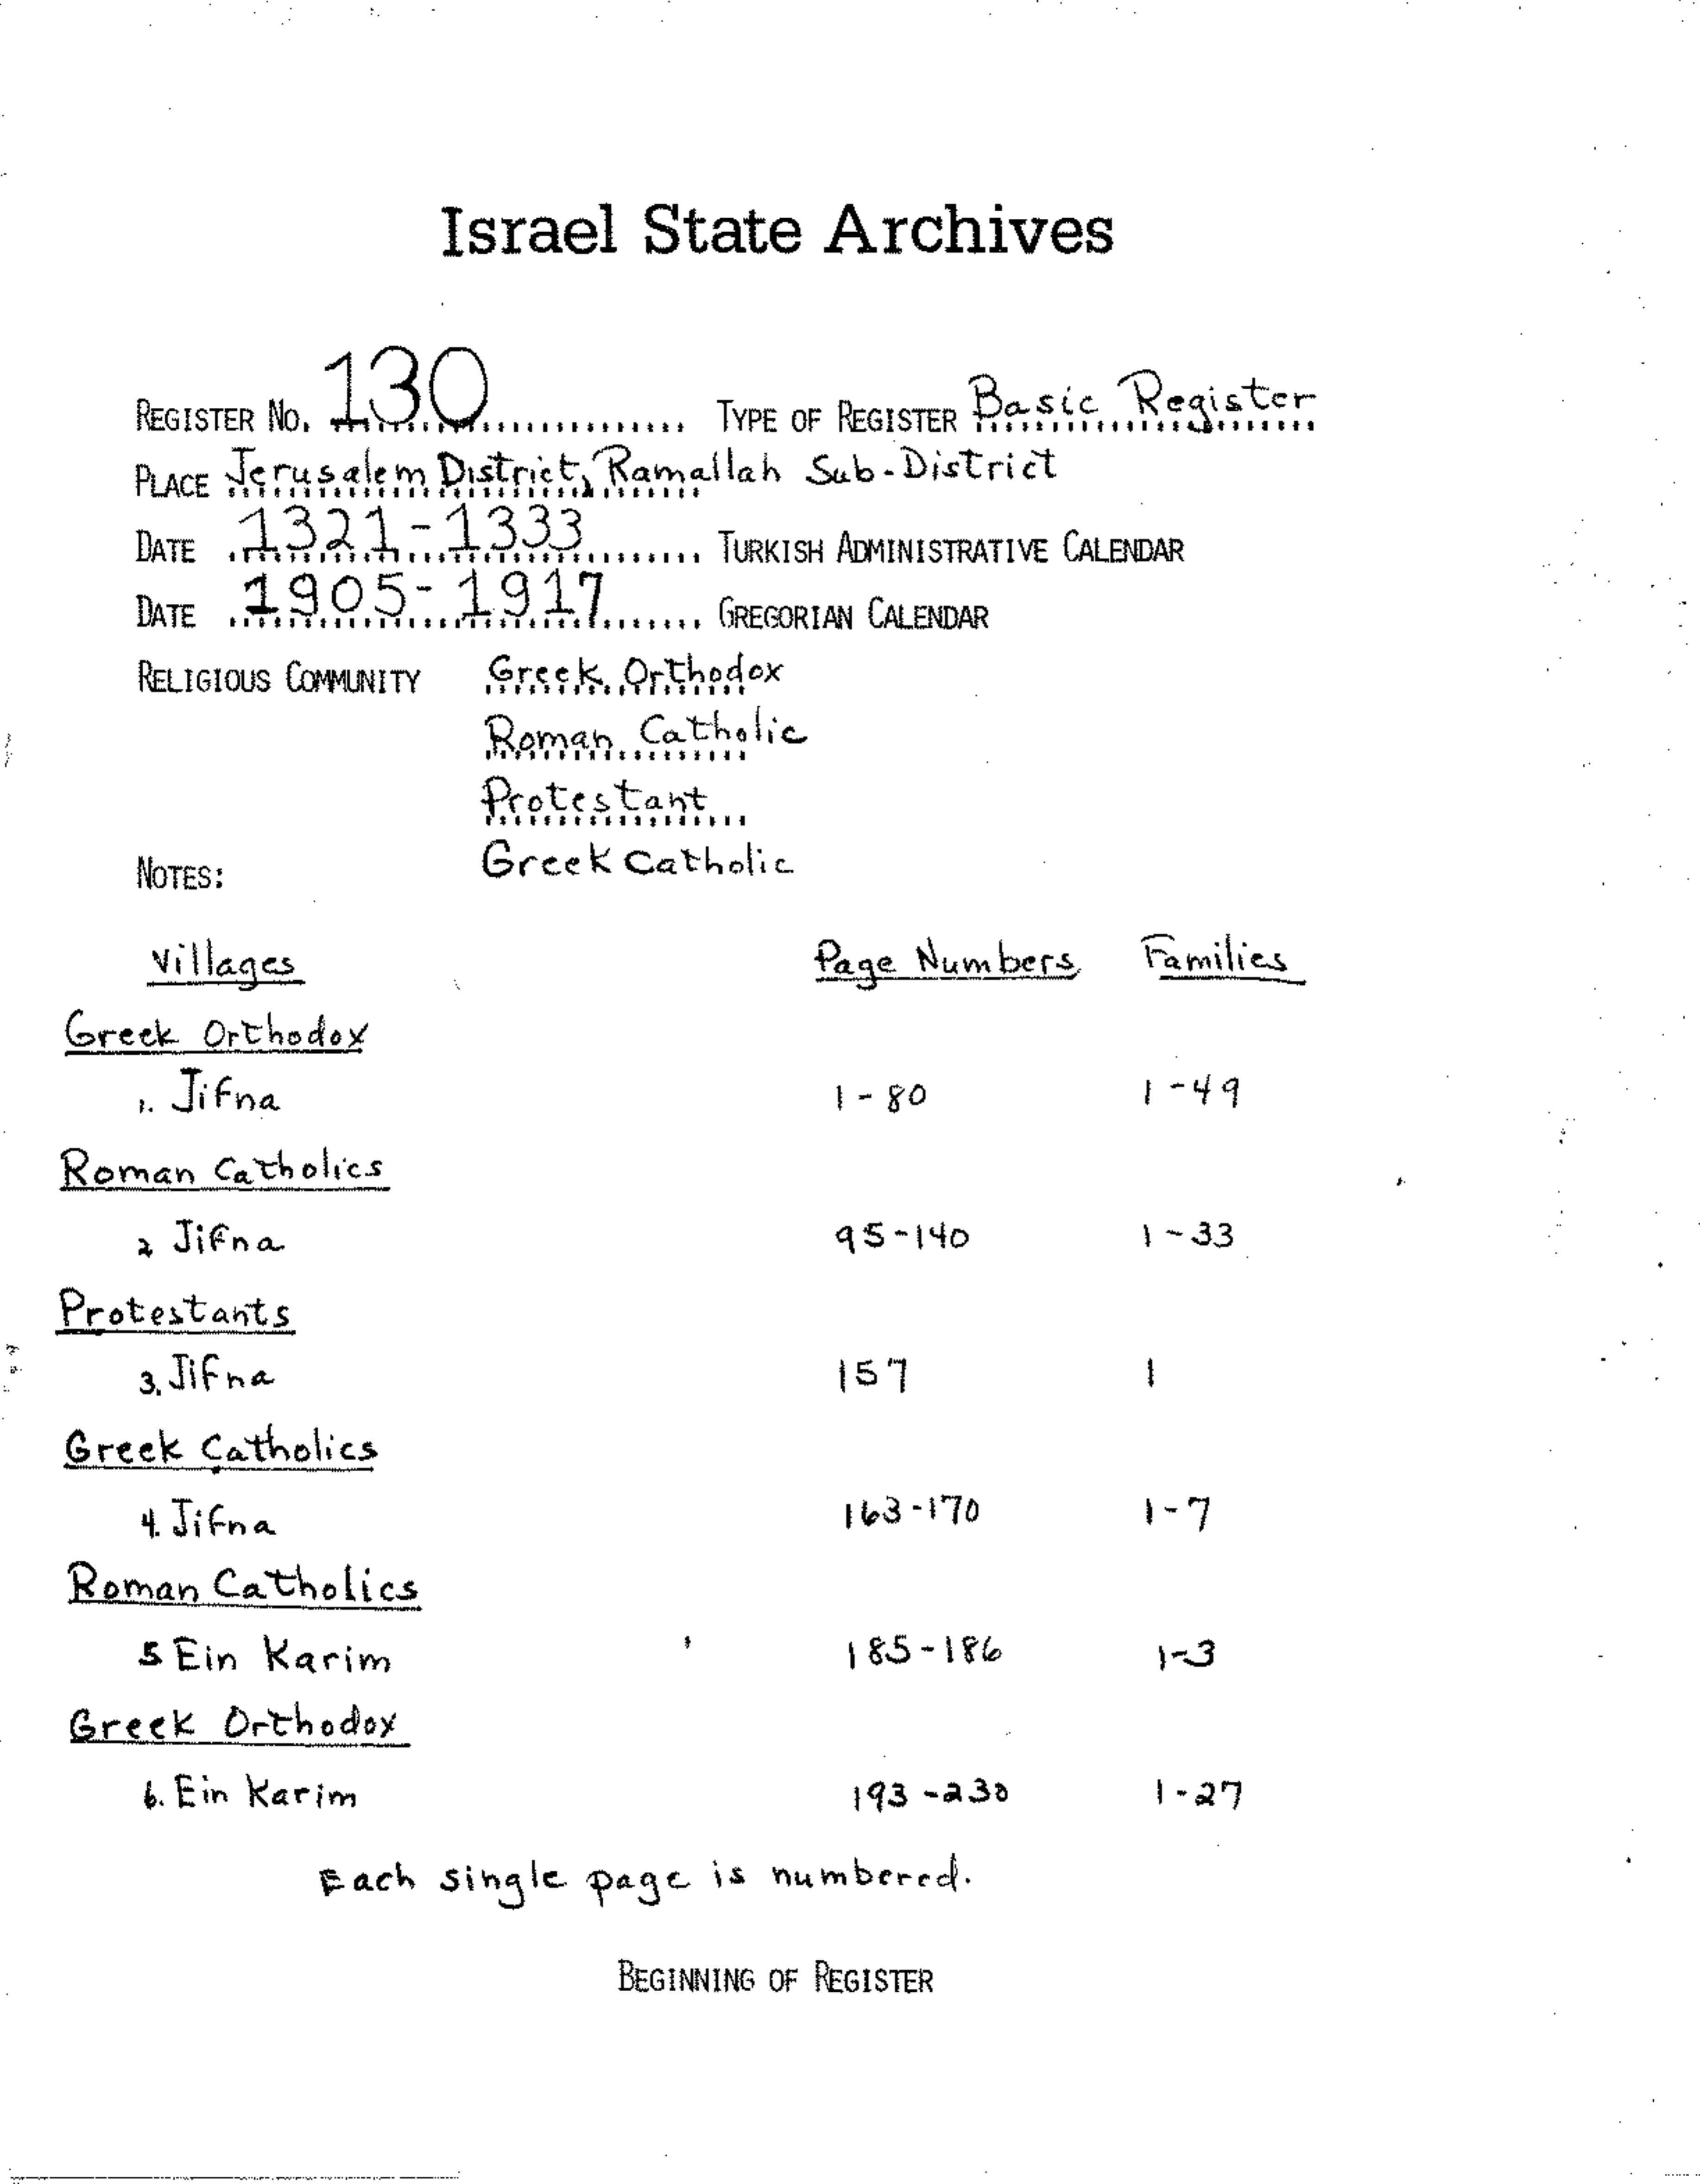 Israel State Archives
REGISTER NO. 130 TYPE OF REGISTER Basic Register
PLACE Jerusalem District, Ramallah Sub-District
DATE 1321-1333 TURKISH ADMINISTRATIVE CALENDAR
DATE 1905-1917 GREGORIAN CALENDAR
RELIGIOUS COMMUNITY Greek Orthodox
Roman Catholic
Protestant
NOTES: Greek Catholic
Villages Page Numbers Families
Greek Orthodox
1. Jifna 1-80 1-49
Roman Catholics
2 Jifna 95-140 1-33
Protestants
3. Jifna 157 1
Greek Catholics
4. Jifna 163-170 1-7
Roman Catholics
5 Ein Karim 185-186 1-3
Greek Orthodox
6. Ein Karim 193-230 1-27
Each single page is numbered.
BEGINNING OF REGISTER